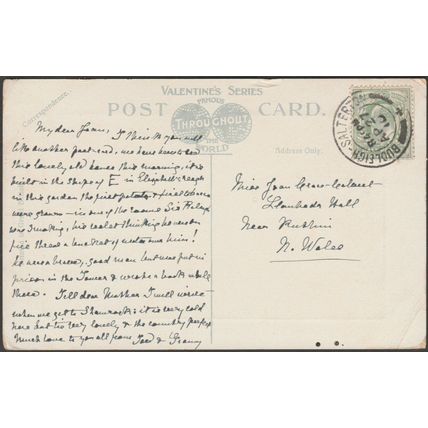 VALENTINE'S SERIES
FAMOUS
THROUGHOUT
THE
WORLD
POST CARD.
Correspondence.
Address Only.
BUDLEIGH-SALTERTON
AP 24
My dear Joan, I think you will
like another post card, we have been to see
this lovely old house this morning, it is
built in the shape of E in Elizabeth's reign
in this garden the first potato &
were grown — in one of the rooms Sir
was smoking, his
threw a bucket of water over him!
he was a brave, good man but was put in
prison in the Tower & wrote a book while
there. Tell dear Mother I will write
when we get to it is very cold
here but it is very lovely & the country
Much love to you all from & Granny
Miss Joan
Hall
Near Ruthin
N. Wales